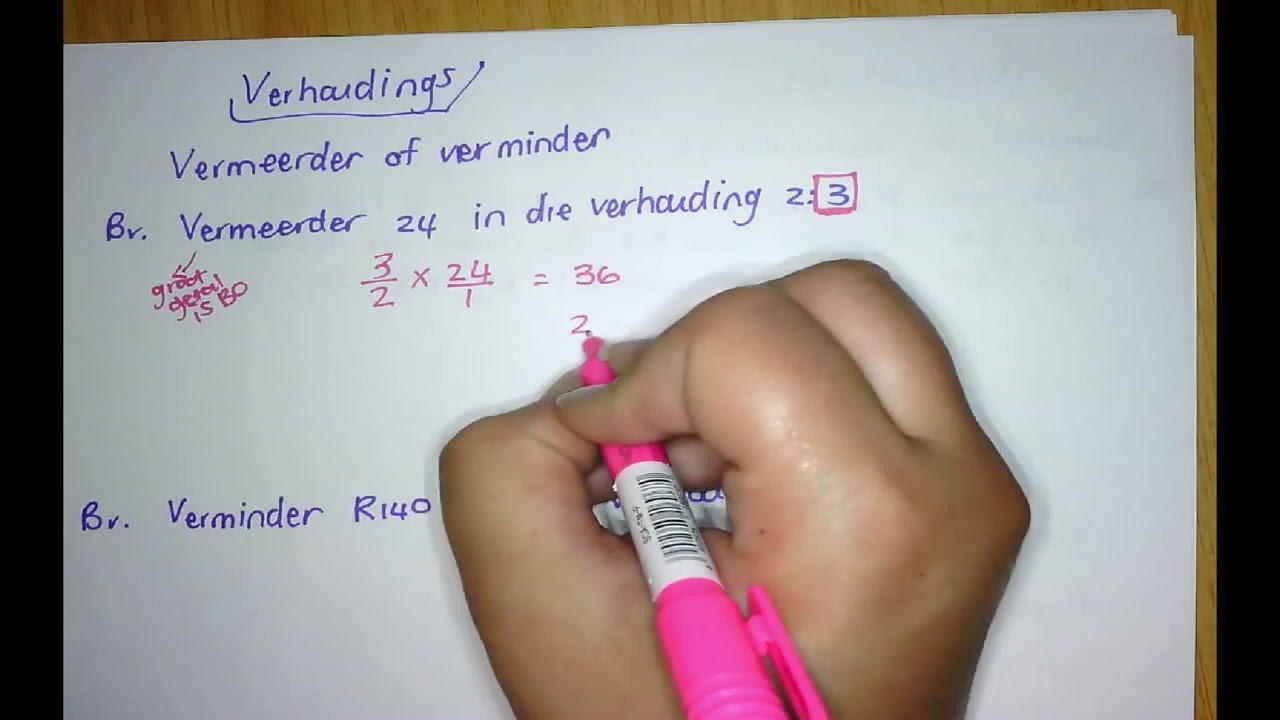 Verhoudings
Vermeerder of verminder
Bv. Vermeerder 24 in die verhouding 2:3
groot
getal
is BO
3/2 × 24/1 = 36
2
Bv. Verminder R140